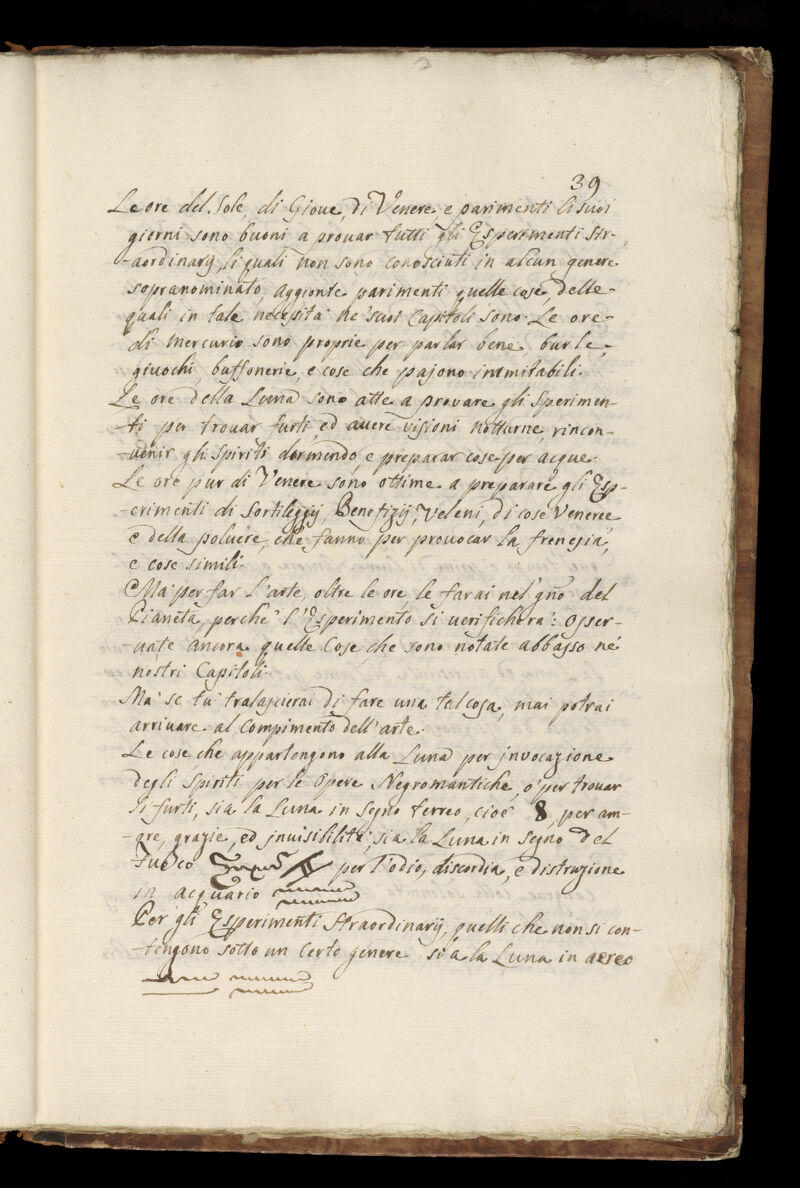 39
Le ore del Sole, di Gioue, di Venere, e parimenti li suoi
giorni sono buoni a prouar tutti gli Esperimenti Str-
-aordinary, li quali non sono conosciuti in alcun genere
sopranominato, aggionte parimenti quelle cose, delle-
quali in tale necesità né suoi Capitoli sono. Le ore-
di mercurio sono proprie per parlar bene, burle,
giuochi, buffonerie, e cose che pajono inimitabili.
Le ore della Luna sono atte a prouare gli sperimen-
ti per trouar furti, ed auere visioni notturne, rincon-
-uenir gli Spiriti dormendo, e preparar cose per acque.
Le ore pur di Venere sono ottime a preparare gli Esp-
-erimenti di Sortileggij, Benefizij, Veleni, di cose Veneree
e della poluere, che fanno per prouocar la frenesia,
e cose simili.
Mà per far l'arte, oltre le ore le farai nel gño del
Pianeta, perche l'Esperimento si uerificherà: osser-
-uate ancora quelle Cose che sono notate abbasso né
nostri Capitoli.
Mà se tù tralascierai di fare una tal cosa, mai potrai
arriuare al Compimento dell'arte.
Le cose che appartengono alla Luna per jnvocazione
degli Spiriti per le Opere Negromantiche, ò per trouar
li furti, sia la Luna in Segno terreo, cioè 8, per am-
-ore, grazie, ed jnuisibilità; sia la Luna in Segno del
Fuoco ♊ per l'odio, discordia, e distruzione
in acquario ♒
Per gli Esperimenti Straordinary, quelli che non si con-
-tengono sotto un certo genere sia la Luna in aereo